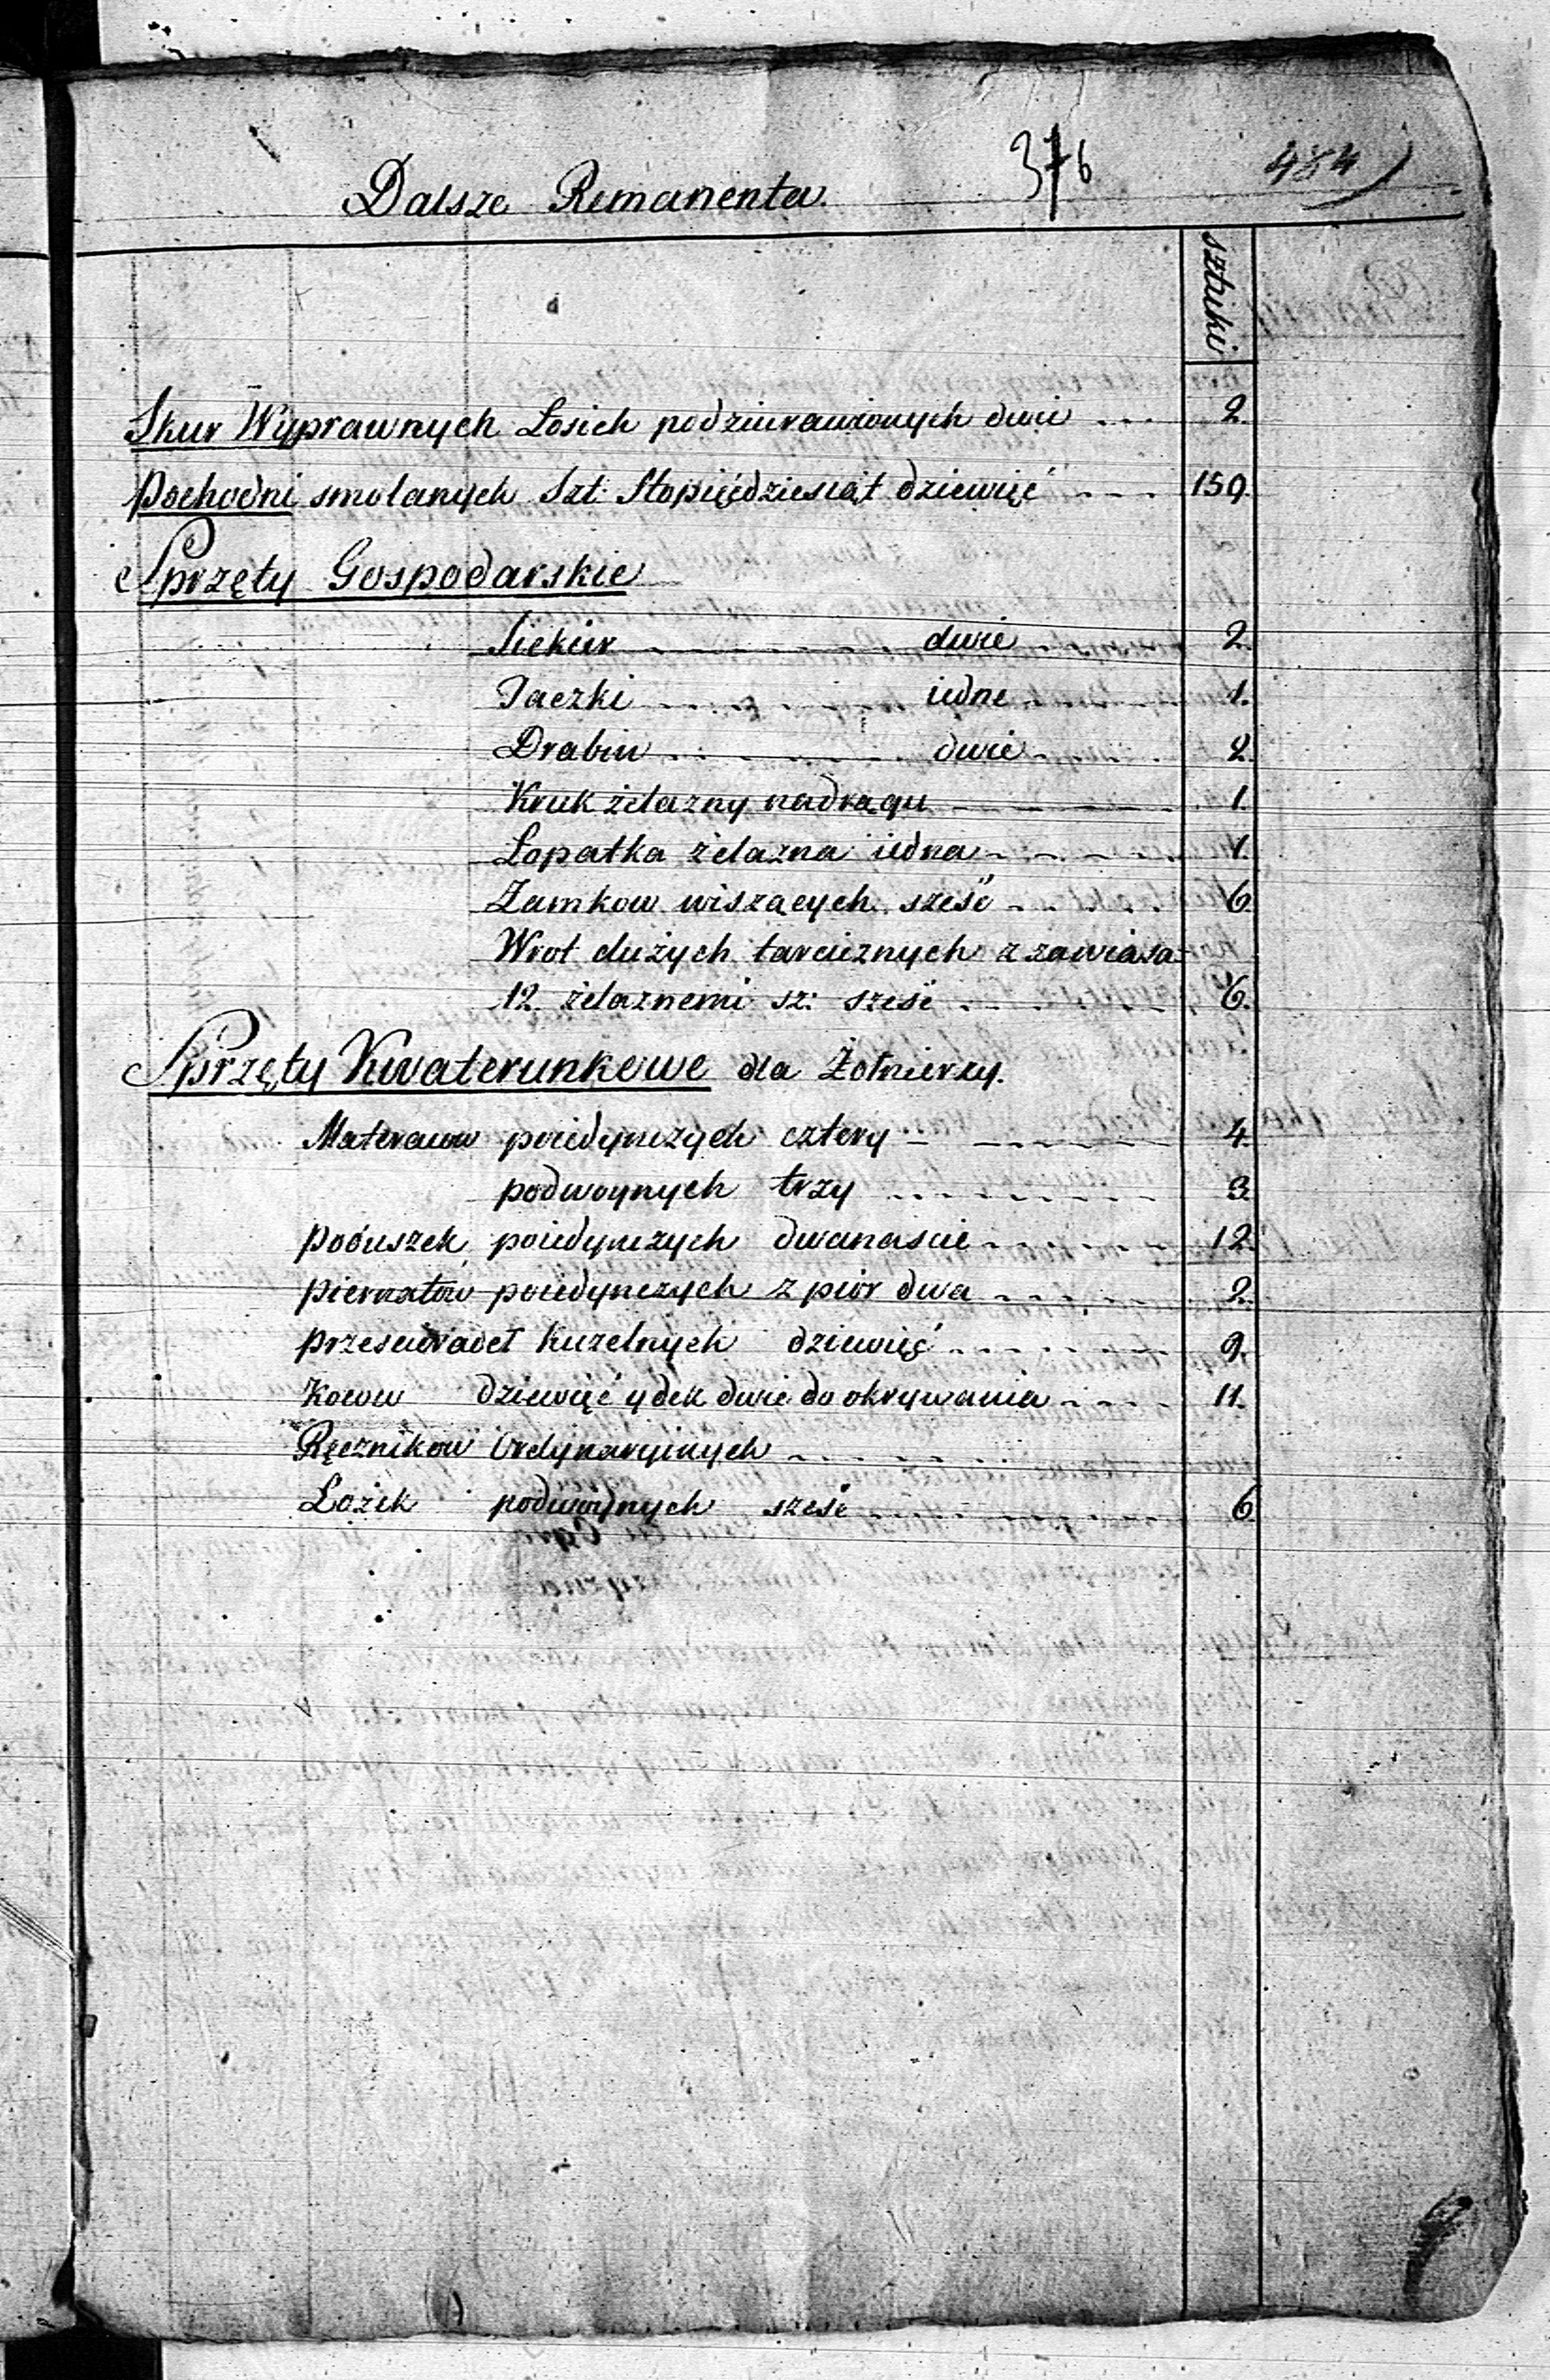 Dalsze Remanenta. 376 484
sztuki
Skur Wyprawnych Łosich podziurawionych dwie 2.
Pochodni smolanych Szt: Stopięćdziesiąt dziewięć 159.
Sprzęty Gospodarskie
Siekier dwie 2.
Taczki iedne 1.
Drabin dwie 2.
Kruk żelazny nadrągu 1.
Łopatka żelazna iedna 1.
Zamkow wiszących sześć 6.
Wrot dużych tarcicznych z zawiasa=
12. żelaznemi sz: sześć 6.
Sprzęty Kwaterunkowe dla Żołnierzy.
Materacow poiedynczych cztery 4.
podwoynych trzy 3
Poduszek poiedynczych dwanaście 12.
Piernatów poiedynczych z piór dwa 2.
Prześcieradeł kuzelnych dziewięć 9.
Kocow dziewięć y dek dwie do okrywania 11.
Ręcznikow Ordynaryinych
Łożek podwoynych sześć 6.